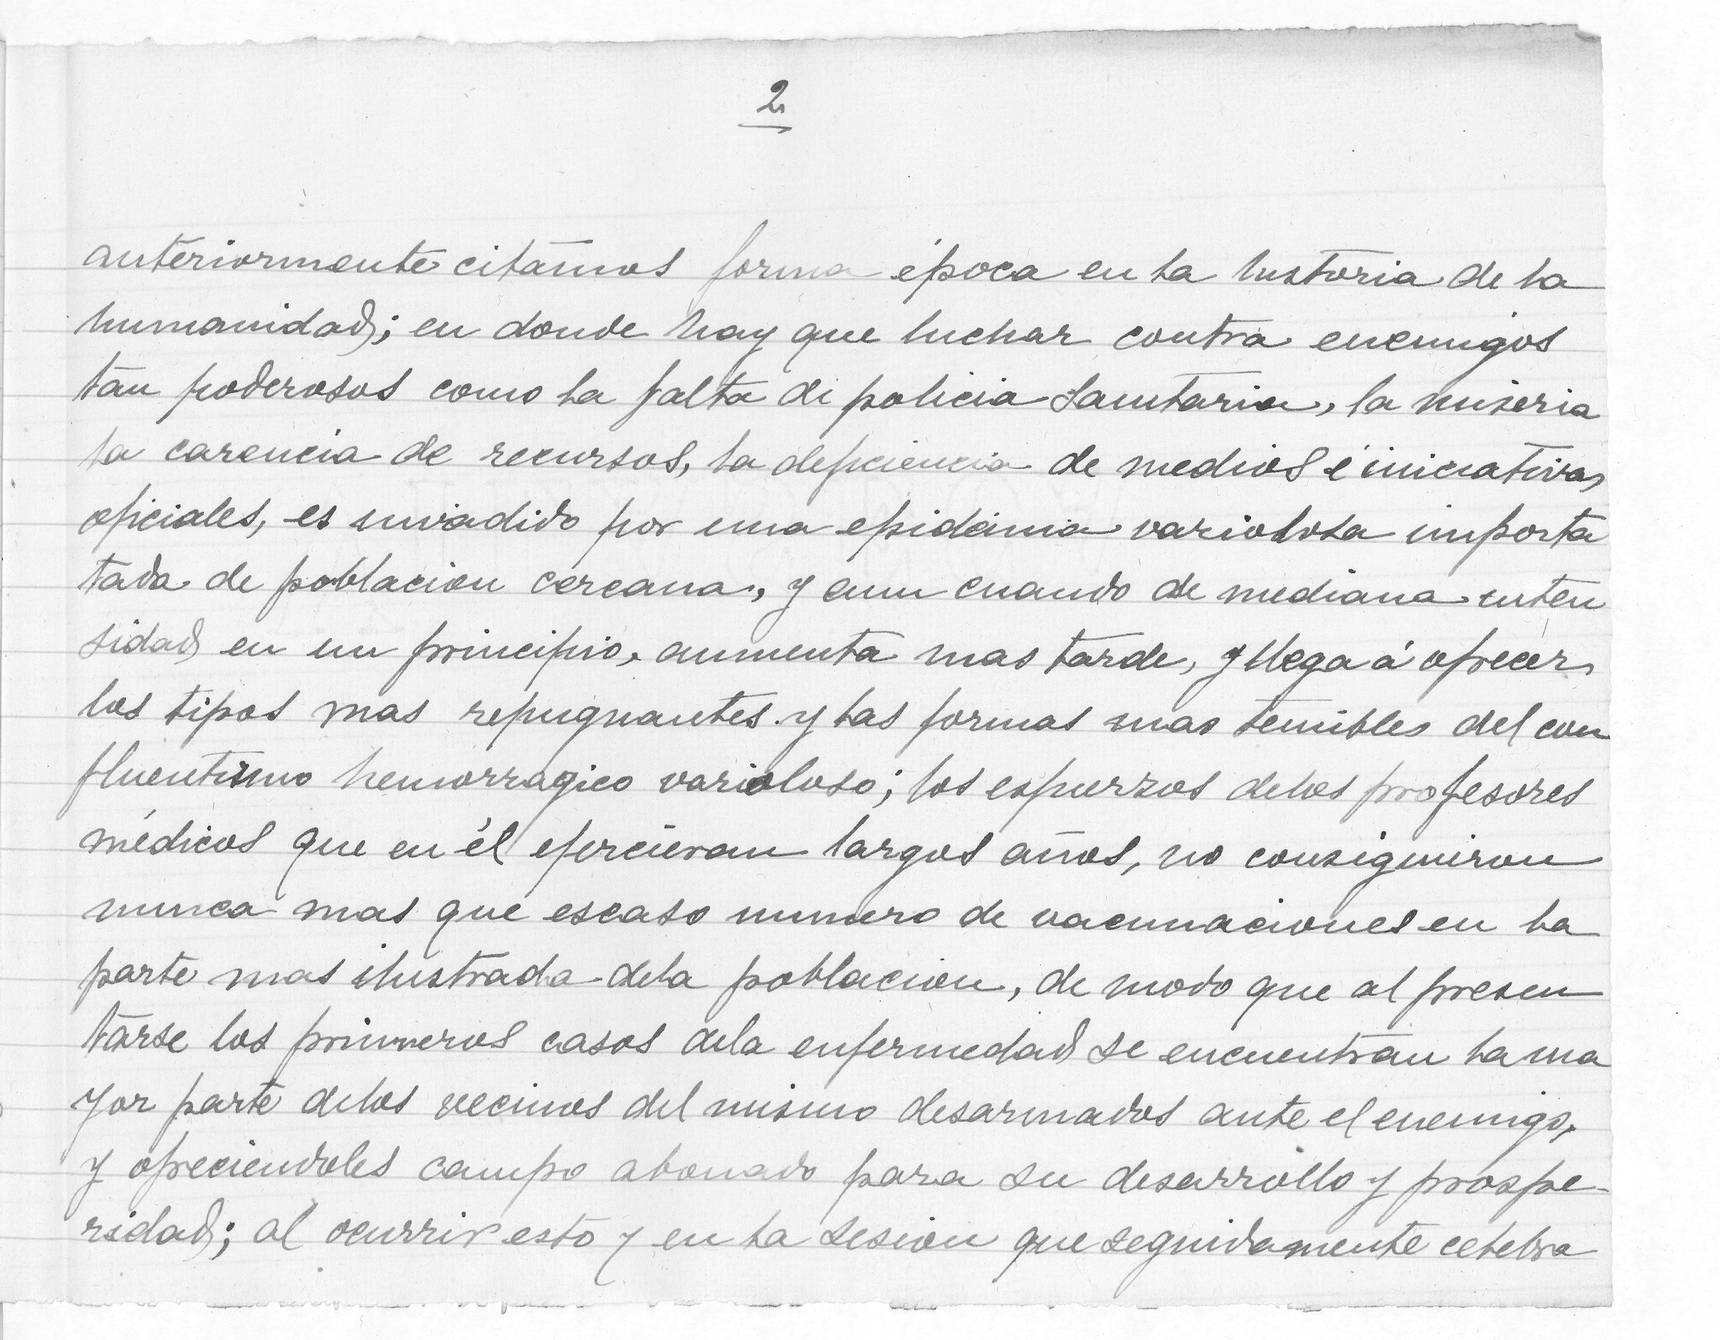 2
anteriormente citamos forma época en la historia de la
humanidad; en donde hay que luchar contra enemigos
tan poderosos como la falta de policia Sanitaria, la miseria
la carencia de recursos, la deficiencia de medios é iniciativas
oficiales, es invadido por una epidémia variolosa importa
tada de poblacion cercana, y aun cuando de mediana inten
sidad en un principio, aumenta mas tarde, y llega á ofrecer
los tipos mas repugnantes y las formas mas temibles del con
fluentismo hemorragico varioloso; los esfuerzos delos profesores
médicos que en él ejercieran largos años, no consiguieron
nunca mas que escaso numero de vacunaciones en la
parte mas ilustrada dela poblacion, de modo que al presen
tarse los primeros casos dela enfermedad se encuentran la ma
yor parte delos vecinos del mismo desarmados ante el enemigo,
y ofreciendoles campo abonado para su desarrollo y prospe-
ridad; al ocurrir esto y en la sesion que seguidamente celebra